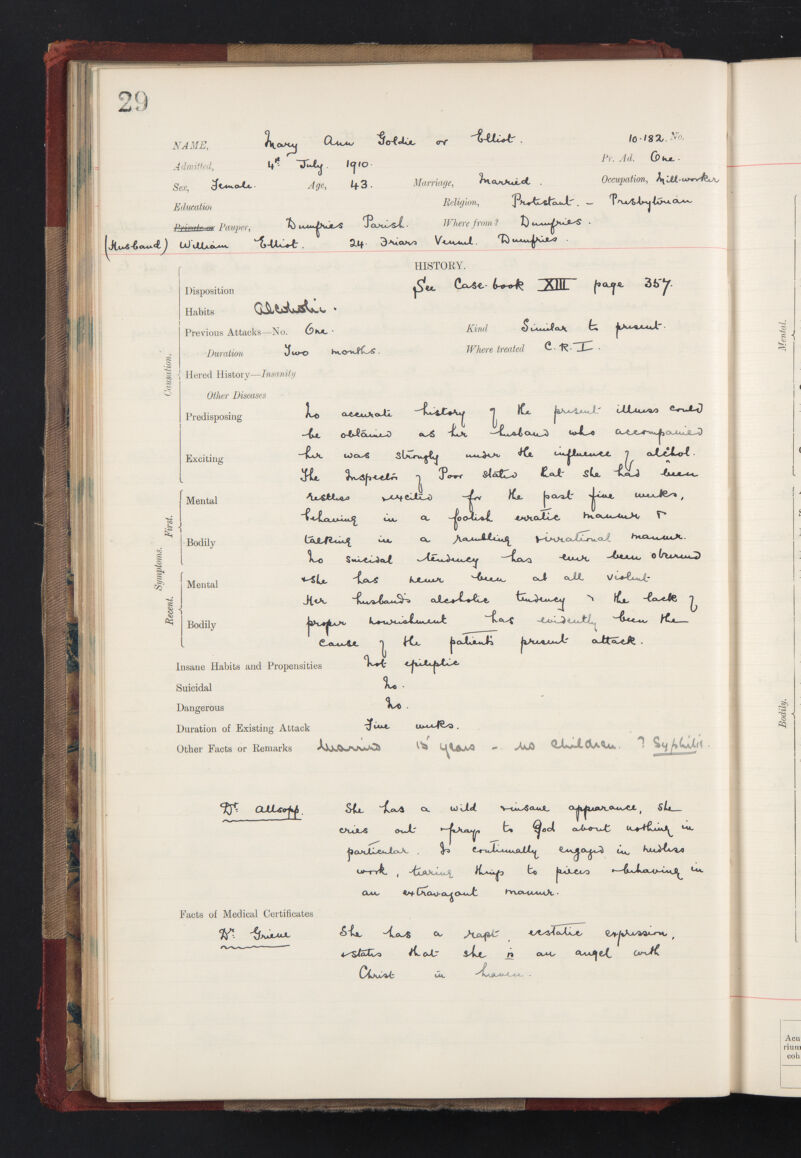 29
NAME, Mary Ann Goldie or Elliot. 10.182. No.
Admitted, 4th July. 1910. Pr. Ad. One.
Sex, Female. Age, 43. Marriage, Married. Occupation, Mill-worker
Education Religion, Protestant. - Presbyterian
Private or Pauper, Dumfries Parish. Where from? Dumfries.
(Husband) William Elliot. 24. Friars Vennel. Dumfries.
HISTORY.
Disposition See Case-book XIII page 357.
Habits Alcoholic.
Previous Attacks—No. One. Kind Similar to present.
Duration Two months. Where treated C.R.I.
Hered History—Insanity
Other Diseases
Causation.
Predisposing No accurate history of the present illness could
be obtained as her husband who accompanied
Exciting her was strongly under the influence of alcohol.
The Inspector of Poor stated that she had been
Symptoms. First. Mental restless & excited for the past five weeks,
behaving in a foolish erratic manner &
Bodily talking in a rambling & irrational manner.
No suicidal tendency has ever been observed
Recent. Mental & she has never been at all violent
Her husband's alcoholic tendency & the lack of
Bodily proper nourishment has evidently been the
cause of the patient's present attack.
Insane Habits and Propensities Not epileptic
Suicidal No.
Dangerous No.
Duration of Existing Attack Five weeks.
Other Facts or Remarks Married 15 years - no children. ? Syphilis.
Dr. Allsopp. She has a wild & insane appearance, she
cries out & prays to God about nothing in
particular. Is continually engaged in needless
work, tearing things to pieces & behaving in
an extravagant manner.
Facts of Medical Certificates
Dr. Grieve She has a rapt, ecstatic expression,
& states that she is an angel with
Christ in heaven.
Mental.
Bodily.
Acu
rium
coh